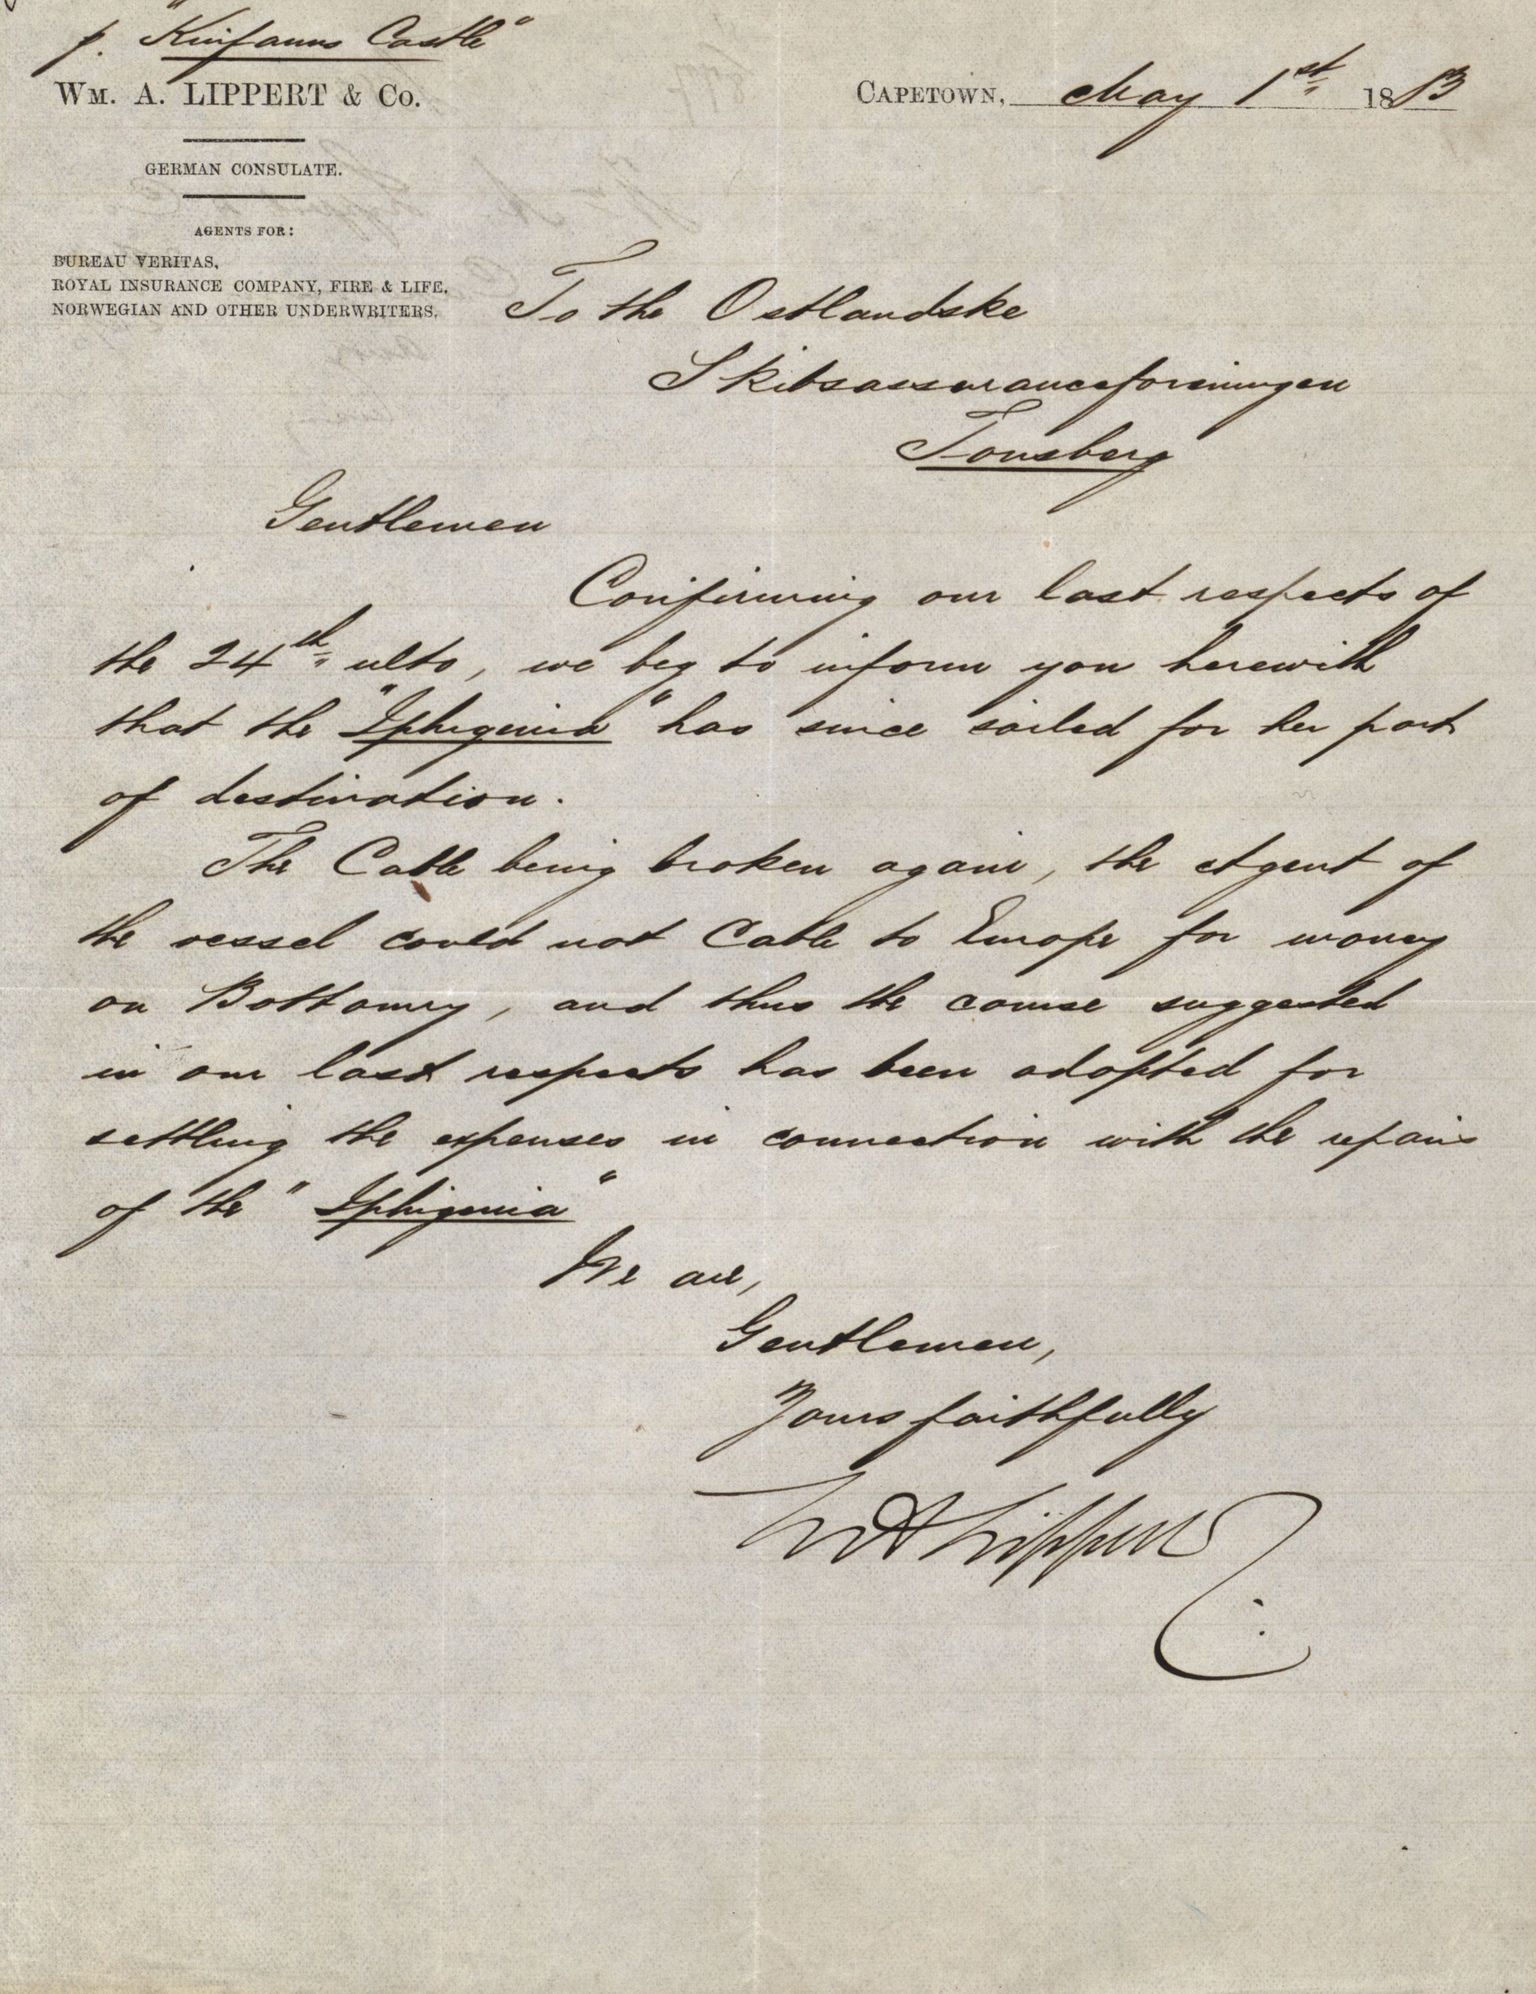 p. "Kinfauns Castle"
WM. A. LIPPERT & Co.
CAPETOWN, May 1st 1883
GERMAN CONSULATE.
AGENTS FOR:
BUREAU VERITAS,
ROYAL INSURANCE COMPANY, FIRE & LIFE,
NORWEGIAN AND OTHER UNDERWRITERS.
To the Ostlandske
Skibsassuranceforeningen
Tonsberg
Gentlemen
Confirming our last respects of
the 24th ulto, we beg to inform you herewith
that the "Iphigenia" has since sailed for her port
of destination.
The Cable being broken again, the Agent of
the vessel could not Cable to Europe for money
on Bottomry, and thus the course suggested
in our last respects has been adopted for
settling the expenses in connection with the repairs
of the "Iphigenia"
We are,
Gentlemen,
Yours faithfully
WA Lippert